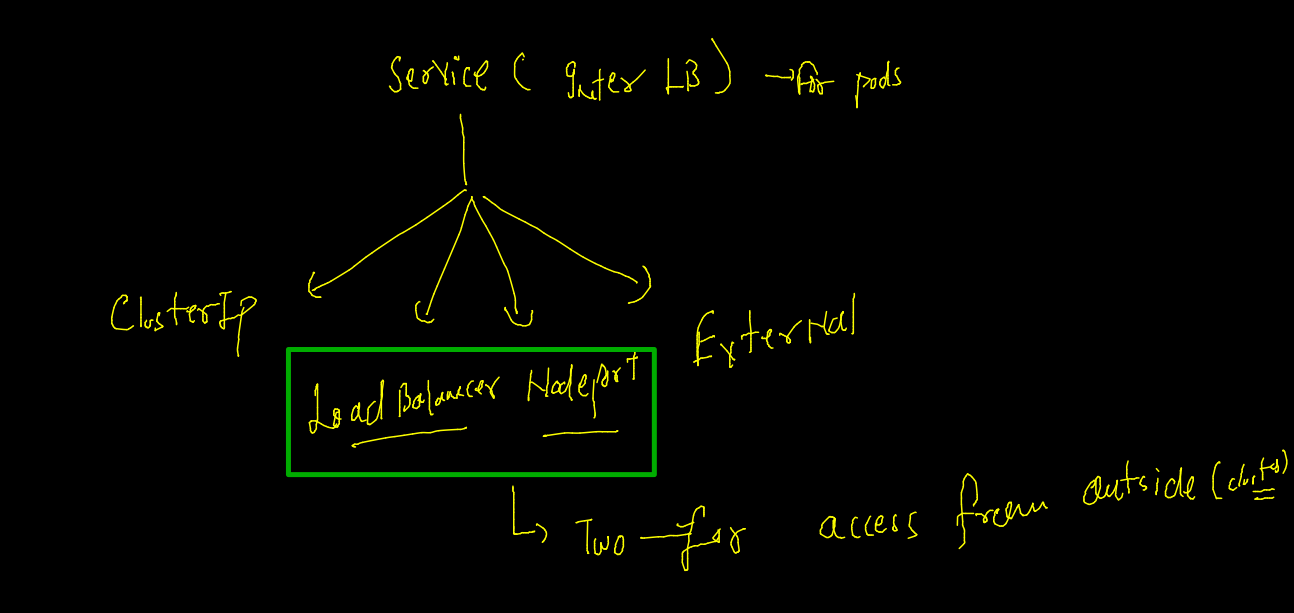 Service ( Inter LB ) → for pods
ClusterIp
LoadBalancer Nodeport
External
Two for access from outside (cluster)